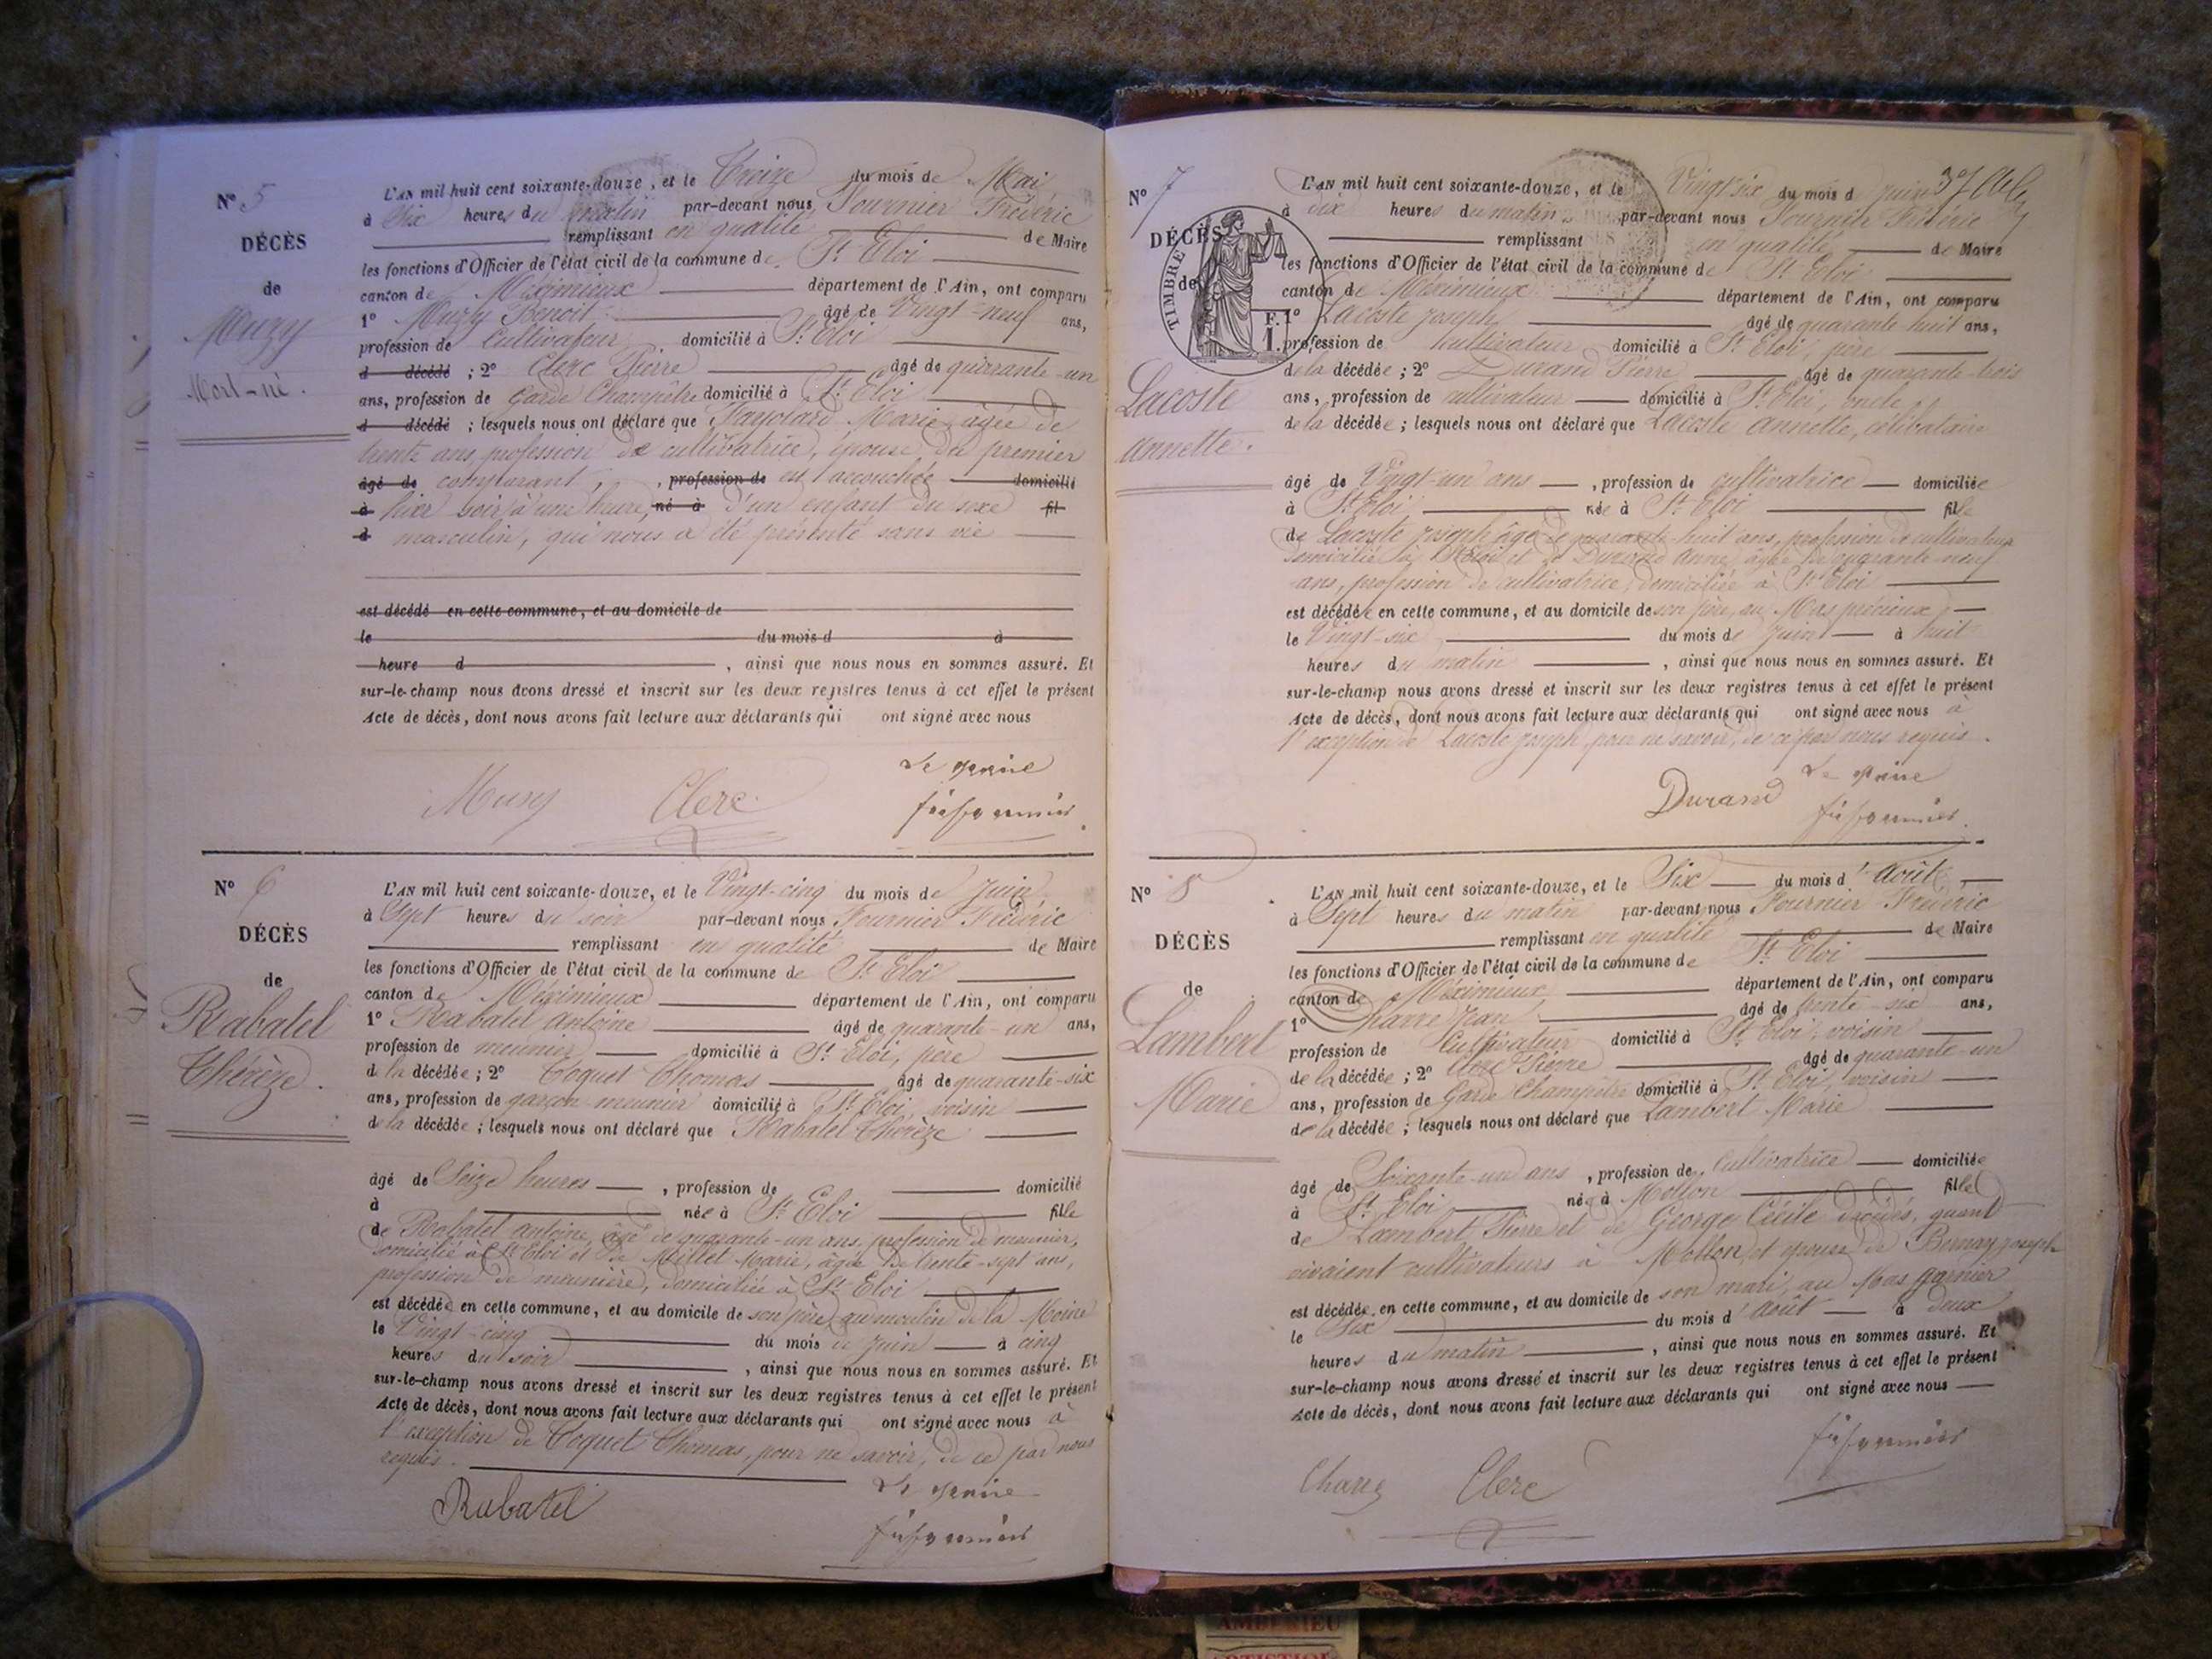 N° 5
DÉCÈS
de
Muzy
Mort-né.
L'AN mil huit cent soixante-douze, et le Treize du mois de Mai
à Six heures du matin par-devant nous Fournier Frédéric
remplissant en qualité de Maire
les fonctions d'Officier de l'état civil de la commune de St Eloi
canton de Méximieux département de l'Ain, ont comparu
1° Muzy Benoit âgé de Vingt-neuf ans,
profession de Cultivateur domicilié à St Eloi
d décédé ; 2° Clerc Pierre âgé de quarante-un
ans, profession de Garde Champêtre domicilié à St Eloi
d décédé ; lesquels nous ont déclaré que Marie âgée de
trente ans, profession de cultivatrice, épouse du premier
âgé de comparant, , profession de est accouchée domicilié
à hier soir à une heure, né à d'un enfant du sexe fil
d masculin, qui nous a été présenté sans vie
est décédé en cette commune, et au domicile de
le du mois d à
heure d , ainsi que nous nous en sommes assuré. Et
sur-le-champ nous avons dressé et inscrit sur les deux registres tenus à cet effet le présent
Acte de décès, dont nous avons fait lecture aux déclarants qui ont signé avec nous
Le maire
Muzy Clerc
N° 6
DÉCÈS
de
Rabatel
Thérèze.
L'AN mil huit cent soixante-douze, et le Vingt-cinq du mois de Juin
à Sept heures du soir par-devant nous Fournier Frédéric
remplissant en qualité de Maire
les fonctions d'Officier de l'état civil de la commune de St Eloi
canton de Méximieux département de l'Ain, ont comparu
1° Rabatel Antoine âgé de quarante-un ans,
profession de meunier domicilié à St Eloi, père
de la décédée ; 2° Coquet Thomas âgé de quarante-six
ans, profession de garçon meunier domicilié à St Eloi, voisin
de la décédée ; lesquels nous ont déclaré que Rabatel Thérèze
âgé de Seize heures , profession de domicilié
à née à St Eloi fille
de Rabatel Antoine, âgé de quarante-un ans, profession de meunier,
domicilié à St Eloi et de Millet Marie, âgée de trente-sept ans,
profession de meunière, domiciliée à St Eloi
est décédée en cette commune, et au domicile de son père, au moulin de la Moine
le Vingt-cinq du mois de juin à cinq
heures du soir , ainsi que nous nous en sommes assuré. Et
sur-le-champ nous avons dressé et inscrit sur les deux registres tenus à cet effet le présent
Acte de décès, dont nous avons fait lecture aux déclarants qui ont signé avec nous à
l'exception de Coquet Thomas, pour ne savoir, de ce par nous
requis.
Le maire
Rabatel
N° 7
DÉCÈS
de
TIMBRE
Lacoste
Annette.
L'AN mil huit cent soixante-douze, et le Vingt six du mois d juin
à dix heures du matin par-devant nous Fournier Frédéric
remplissant en qualité de Maire
les fonctions d'Officier de l'état civil de la commune de St Eloi
canton de Méximieux département de l'Ain, ont comparu
1° Lacoste Joseph âgé de quarante huit ans,
profession de cultivateur domicilié à St Eloi, père
de la décédée ; 2° Durand Pierre âgé de quarante-trois
ans, profession de cultivateur domicilié à St Eloi, oncle
de la décédée ; lesquels nous ont déclaré que Lacoste Annette, célibataire
âgé de Vingt-un ans , profession de cultivatrice domiciliée
à St Eloi née à St Eloi fille
de Lacoste Joseph âgé de quarante-huit ans, profession de cultivateur
domicilié à St Eloi et de Durand Anne âgée de quarante-neuf
ans, profession de cultivatrice, domiciliée à St Eloi
est décédée en cette commune, et au domicile de son père, au Mas précieux
le Vingt-six du mois de Juin à huit
heures du matin , ainsi que nous nous en sommes assuré. Et
sur-le-champ nous avons dressé et inscrit sur les deux registres tenus à cet effet le présent
Acte de décès, dont nous avons fait lecture aux déclarants qui ont signé avec nous à
l'exception de Lacoste Joseph, pour ne savoir, de ce par nous requis.
Le maire
Durand
N° 8
DÉCÈS
de
Lambert
Marie
L'AN mil huit cent soixante-douze, et le Six du mois d'Août
à Sept heures du matin par-devant nous Fournier Frédéric
remplissant en qualité de Maire
les fonctions d'Officier de l'état civil de la commune de St Eloi
canton de Méximieux département de l'Ain, ont comparu
1° Charve Jean âgé de trente-six ans,
profession de Cultivateur domicilié à St Eloi, voisin
de la décédée ; 2° Clerc Pierre âgé de quarante-un
ans, profession de Garde Champêtre domicilié à St Eloi, voisin
de la décédée ; lesquels nous ont déclaré que Lambert Marie
âgé de Soixante-un ans , profession de Cultivatrice domiciliée
à St Eloi née à Mollon fille
de Lambert Pierre et de George Cécile décédés, quand
vivaient cultivateurs à Mollon, et épouse de Bernay Joseph
est décédée en cette commune, et au domicile de son mari, au Mas garnier
le Six du mois d'Août à deux
heures du matin , ainsi que nous nous en sommes assuré. Et
sur-le-champ nous avons dressé et inscrit sur les deux registres tenus à cet effet le présent
Acte de décès, dont nous avons fait lecture aux déclarants qui ont signé avec nous
Clerc